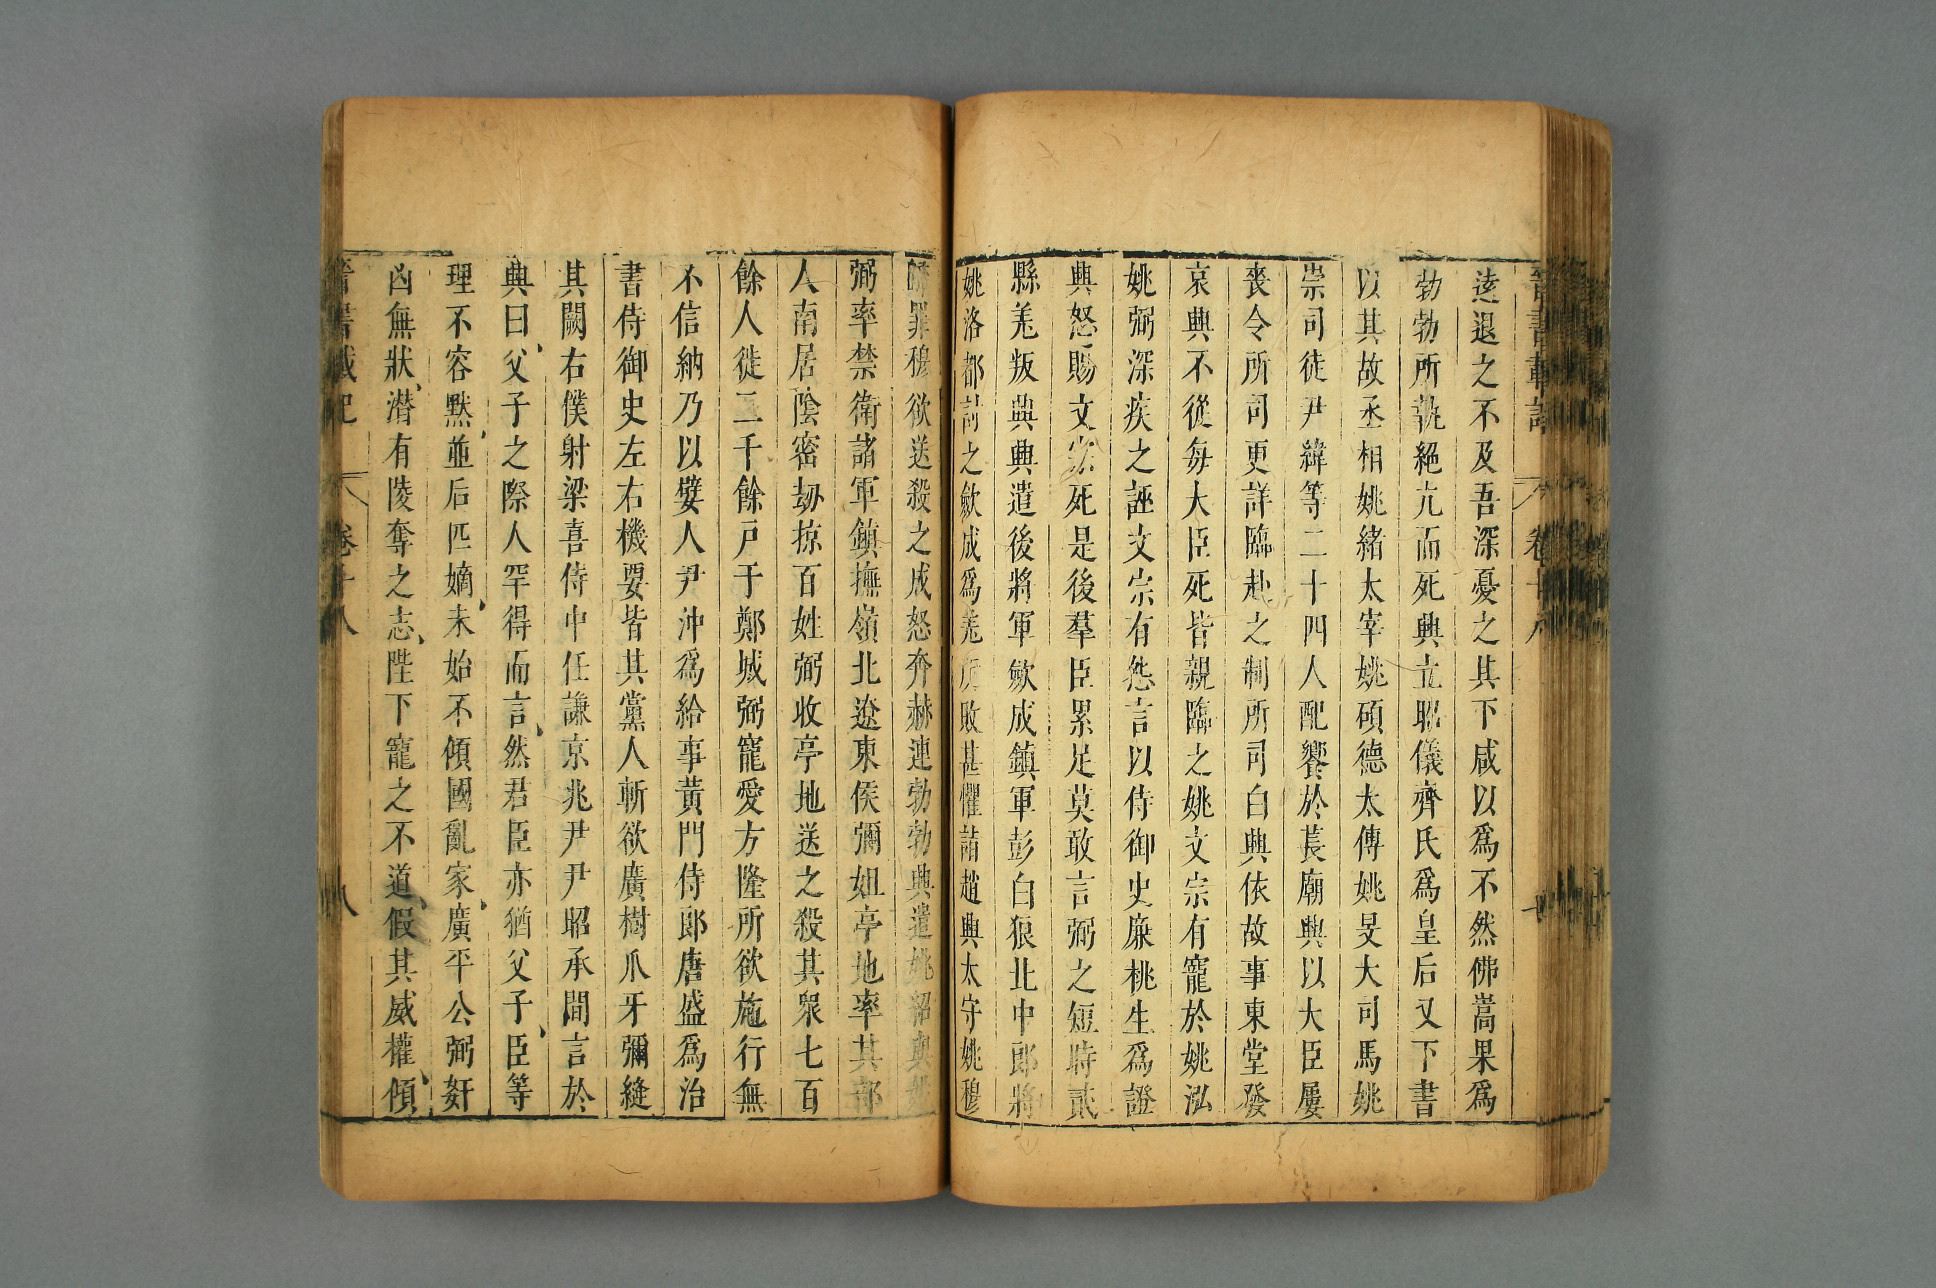 晉書載記 卷十八
逵退之不及吾深憂之其下咸以爲不然佛嵩果爲
勃勃所執絕亢而死興立昭儀齊氏爲皇后又下書
以其故丞相姚緒太宰姚碩德太傅姚旻大司馬姚
崇司徒尹緯等二十四人配饗於萇廟興以大臣屢
喪令所司更詳臨赴之制所司白興依故事東堂發
哀興不從每大臣死皆親臨之姚文宗有寵於姚泓
姚弼深疾之誣文宗有怨言以侍御史廉桃生爲證
興怒賜文宗死是後羣臣累足莫敢言弼之短時貳
縣羌叛興興遣後將軍斂成鎮軍彭白狼北中郎將
姚洛都討之斂成爲羌所敗甚懼詣趙興太守姚穆
歸罪穆欲送殺之成怒奔赫連勃勃興遣姚紹與姚
弼率禁衛諸軍鎮撫嶺北遼東侯彌姐亭地率其部
人南居陰密劫掠百姓弼收亭地送之殺其衆七百
餘人徙二千餘戶于鄭城弼寵愛方隆所欲施行無
不信納乃以嬖人尹沖爲給事黃門侍郎唐盛爲治
書侍御史左右機要皆其黨人斬欲廣樹爪牙彌縫
其闕右僕射梁喜侍中任謙京兆尹尹昭承間言於
興曰父子之際人罕得而言然君臣亦猶父子臣等
理不容默並后匹嫡未始不傾國亂家廣平公弼奸
凶無狀潛有陵奪之志陛下寵之不道假其威權傾
晉書載記 卷十八 八